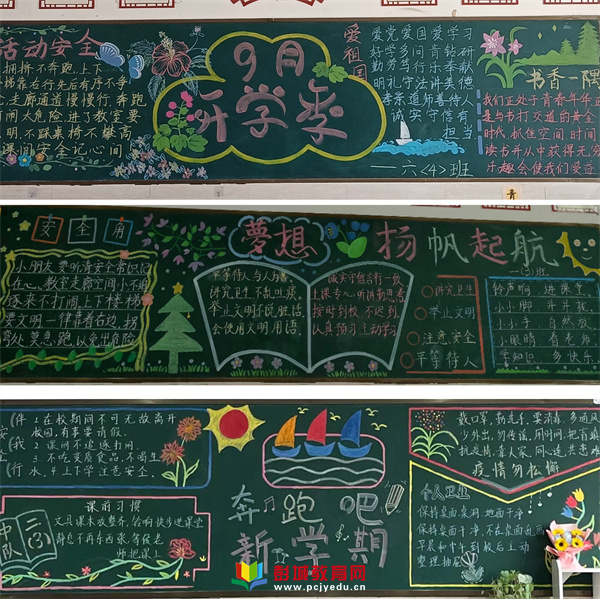 活动安全
拥挤不奔跑,上下
梯靠右行先后有序不争
走廊通道慢慢行,奔跑
打闹太危险,进了教室要
明,不踩桌椅不攀高
课间安全记心间
9月
开学季
爱祖国
爱党爱国爱学习
好学多问肯钻研
勤劳笃行乐奉献
明礼守法讲美德
孝亲尊师善待人
诚实守信有
担当
六〈4〉班
书香一隅
我们正处于青春年华正
是与书打交道的黄金
时代,抓住空间时间
读书并从中获得无穷
乐趣会使我们受益
青
安全角
小朋友要听清安全常识记
在心,教室走廊空间小不追
逐来不打闹上下楼梯
要文明一律靠着右边,拐
弯处莫急跑,以免出危险
夢想
扬帆起航
一(3)班
平等待人与人为善
讲究卫生不乱吐痰
举止文明不说脏话
会使用文明用语
诚实守信言行一致
上课专心听讲勤思考
按时到校不迟到
认真预习主动学习
讲究卫生
举止文明
注意安全
平等待人
铃声响进课堂
小小脚并并拢
小小手自然放
小眼睛看老师
学知识多快乐
1.在校期间不可无故离开
校园,有事要请假。
2.课间不追逐打闹。
3.不吃变质食品,不喝生
水。4.上下学注意安全。
课前习惯
文具课本放整齐,铃响快步进课堂
静息不再东西张,等候老
师把课上
中队
二(3)
奔跑吧
新学期
戴口罩,勤洗手,要消毒,多通风
少外出,勿传谣,用时间,把菌消
抗疫情,靠大家,同心连,共患难
疫情勿松懈
个人卫生
保持桌面整洁,地面干净
保持桌面干净,不在桌面乱画
早晨和中午到校后主动
整理抽屉
彭城教育网
www.pcjyedu.cn